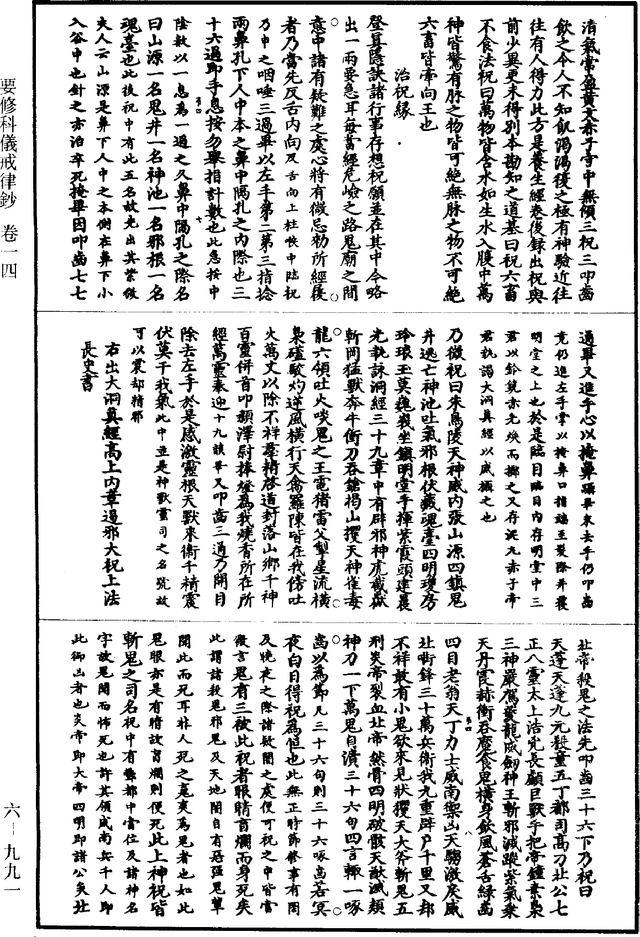 清氣常盈黃文赤子守中無傾三祝三叩齒
飲之令人不知飢渴渴後之極有神驗近往
往有人得力此方是養生經卷後錄出祝與
前少異更未得別本勘知之道基曰祝六畜
不食法祝曰萬物皆含水如生水入腹中萬
神皆驚有脉之物皆可絕無脉之物不可絕
六畜皆帝向王也
治祝緣
登真隱訣諸行事存想祝願並在其中今略
出一兩要急耳每當經危嶮之路鬼廟之間
意中諸有疑難之處心將有微忌勑所經履
者乃當先反舌内向及舌向上柱喉中臨祝
乃申之咽唾三過畢以左手第二第三指捻
兩鼻孔下人中本之鼻中隔孔之内際也三
十六過即手急按勿舉指計數也此急按中
陰數以一息為一過之久鼻中隔孔之際名
曰山源一名鬼井一名神池一名邪根一名
魂臺也此後祝中有此五名故先出其
夫人云山源是鼻下人中之本側在鼻下小
入谷中也針之亦治卒死掩畢因叩齒七七
過畢又進手心以掩鼻畢來去手仍叩齒
竟仍進左手掌以掩鼻口指端至髮際并覆
明堂之上也於是臨目臨目内存明堂中三
君以鈴鏡赤光焕而擲之又存泥丸赤子帝
君執謁大洞真經以威攝之也
乃微祝曰朱鳥陵天神威内張山源四鎮鬼
井逃亡神池吐氣邪根伏藏魂臺四明瓊房
玲琅玉莫巍峩坐鎮明堂手揮紫霞頭建晨
光執詠洞經三十九章中有辟邪神虎截嶽
斬岡猛獸奔牛銜刀吞鎗揭山攫天神雀毒
龍六領吐火啖鬼之王電猪雷父掣星流橫
梟磕駮灼逆風橫行天禽羅陳皆在我傍吐
火萬丈以除不祥羣精啓道封落山鄉千神
百靈併首叩顙澤尉捧燈為我燒香所在所
經萬靈奉迎十九讀畢又叩齒三通乃開目
除去左手於是感激靈根天獸來衛千精震
伏莫干我氣此中並是神獸靈司之名號故
可以震却精邪
右出大洞真經高上内章遏邪大祝上法
長史書
北帝殺鬼之法先叩齒三十六下乃祝曰
天蓬天蓬九元殺童五丁都司高刀北公七
正八靈太上浩兇長顱巨獸手把帝鍾素梟
三神嚴駕夔龍威劒神王斬邪滅蹤紫氣乘
天丹霞赫衝吞魔食鬼橫身飲風蒼舌綠齒
四目老翁天丁力士威南禦凶天騶激戾威
北銜鋒三十萬兵衛我九重辟尸千里又却
不祥敢有小鬼欲來見狀攫天大斧斬鬼五
刑炎帝裂血北帝燃骨四明破骸天猷滅類
神刀一下萬鬼自潰三十六句四言輙一啄
齒以為節凡三十六句則三十六啄齒若冥
夜白日得祝為恒也此無正時節修事有間
及晚夜之際諸疑闇之處便可祝之中皆當
微言鬼有三被此祝者眼睛盲爛而身死矣
此謂諸我鬼邪鬼及天地間自有惡强鬼輩
聞此而死耳非人死之寃爽為鬼者也如此
鬼眼亦是有睛故盲爛則便死此上神祝皆
斬鬼之司名祝中有酆都中官位及諸神名
字故鬼聞而怖死也許其領威南兵千人即
此禦凶者也炎帝即大帝四明即諸公矣北
要修科儀戒律鈔　卷一四
六—九九一